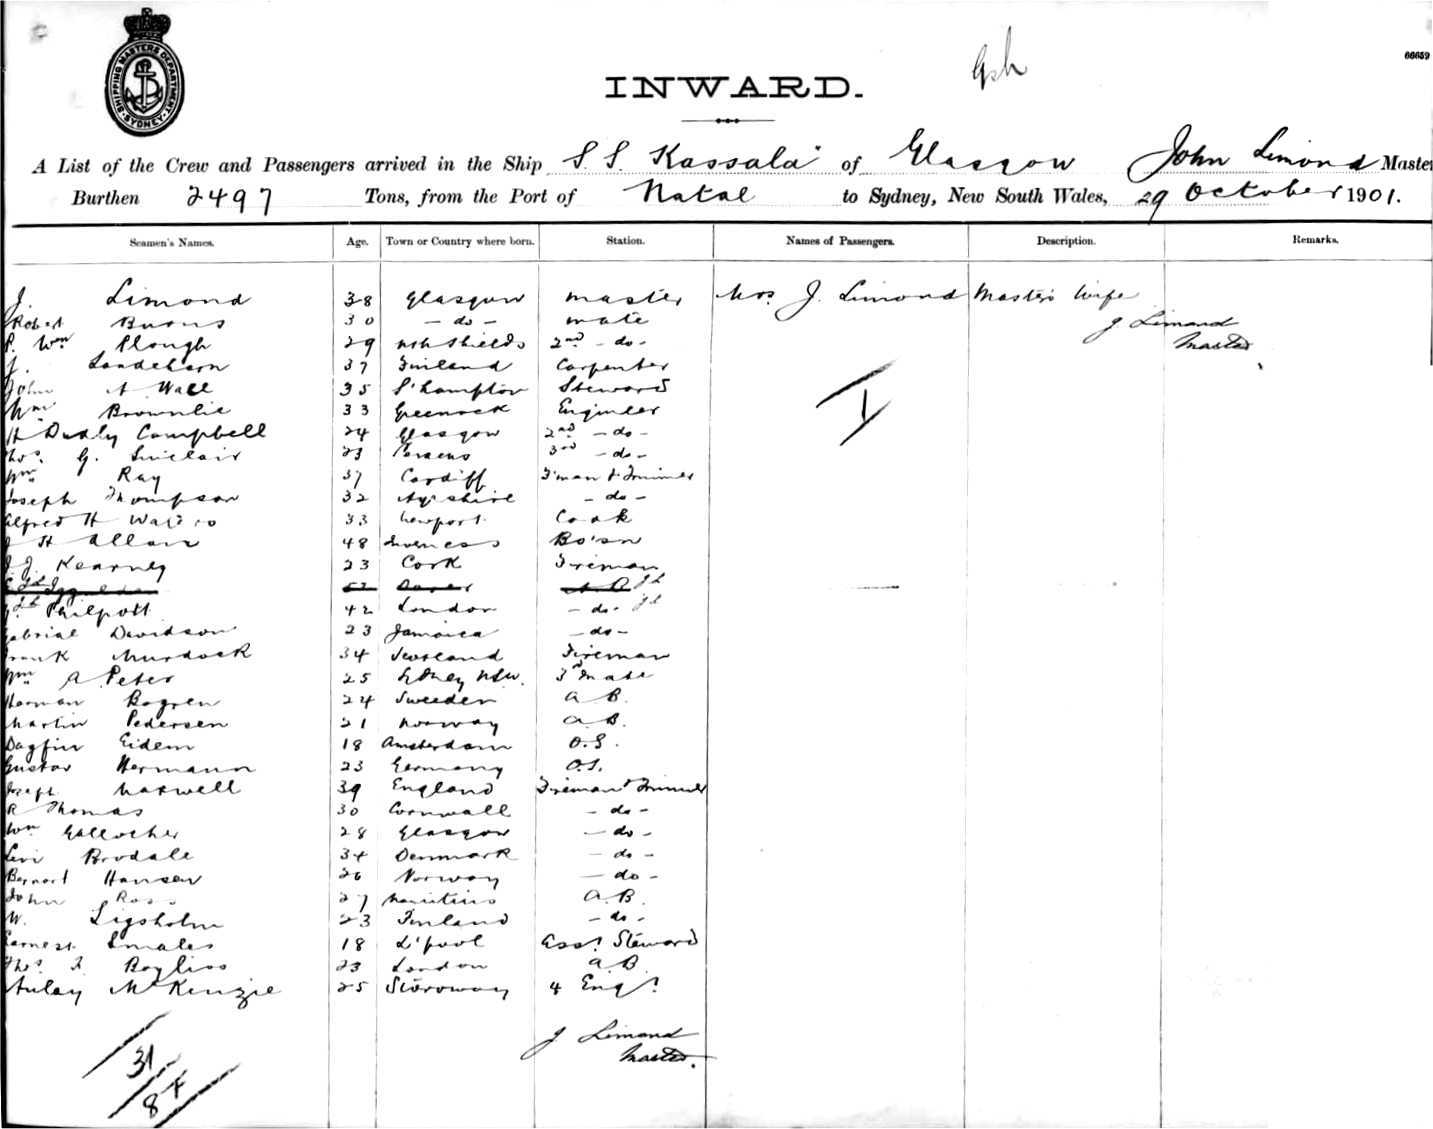 SHIPPING MASTERS DEPARTMENT SYDNEY
66659
INWARD.
A List of the Crew and Passengers arrived in the Ship S.S. Kassala of Glasgow John Limond Master
Burthen 2497 Tons, from the Port of Natal to Sydney, New South Wales, 29 October 1901.
Seamen's Names. Age. Town or Country where born. Station. Names of Passengers. Description. Remarks.
J. Limond 38 Glasgow Master Mrs J. Limond Master's Wife
Robert Burns 30 - do - Mate J Limond
P. Wm Plough 29 Nth Shields 2nd - do - Master
J. 37 Finland Carpenter
John A Wall 35 S'hampton Steward
Wm Brownlie 33 Greenock Engineer
H Dudly Campbell 24 Glasgow 2nd - do -
Thos. G. Sinclair 23 3rd - do -
Wm Ray 37 Cardiff F'man & Trimmer
Joseph Thompson 32 Ayrshire - do -
Alfred H 33 Newport Cook
J H Allan 48 Inverness Bo'sn
J J Kearney 23 Cork Fireman
Philpott 42 London - do -
Gabriel Davidson 23 Jamaica - do -
Frank Murdock 34 Scotland Fireman
Wm A Peter 25 Sydney NSW. 3rd Mate
Herman Bogren 24 Sweden A B.
Martin Pedersen 21 Norway A B.
Dagfin Eidem 18 Amsterdam O.S.
Gustav Hermann 23 Germany O.S.
Joseph Maxwell 39 England Fireman & Trimmer
R Thomas 30 Cornwall - do -
Wm Gallocher 28 Glasgow - do -
Levi Brodale 34 Denmark - do -
Bernart Hansen 26 Norway - do -
John Ross 27 Mauritius A.B.
W. Ligsholm 23 Finland - do -
Earnest Smales 18 L'pool Asst Steward
Thos. F Bayliss 23 London A.B.
Aulay McKenzie 25 Stornoway 4 Engr
J Limond
Master.
31
84